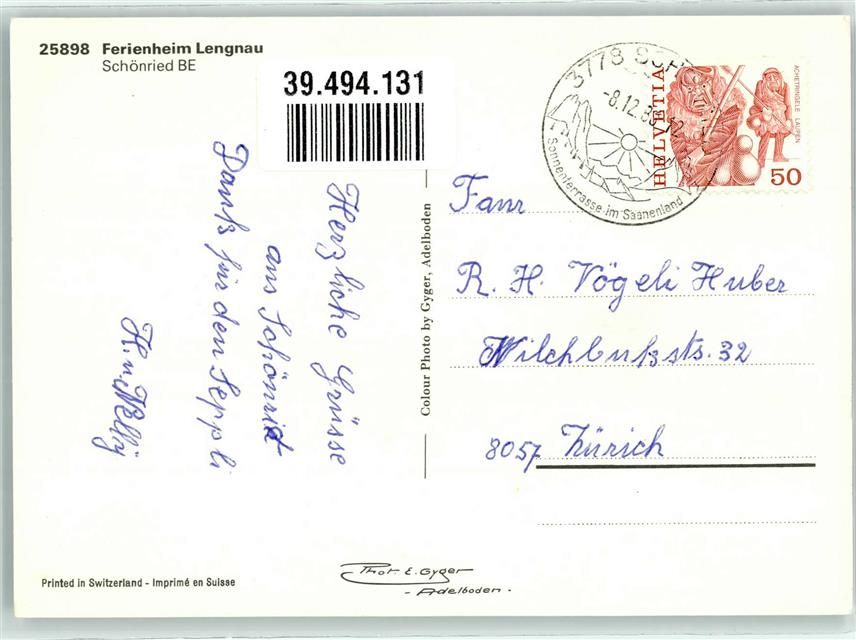 25898 Ferienheim Lengnau
Schönried BE
39.494.131
3778 SCH
-8.12.8
Sonnenterrasse im Saanenland
HELVETIA
ACHETRINGELE LAUPEN
50
Herzliche Grüsse
aus Schönried
Dank für den Seppli
H. u. Nelly
Colour Photo by Gyger, Adelboden
Fam
R. H. Vögeli Huber
32
8057 Zürich
Printed in Switzerland - Imprimé en Suisse
Phot. E. Gyger
- Adelboden -